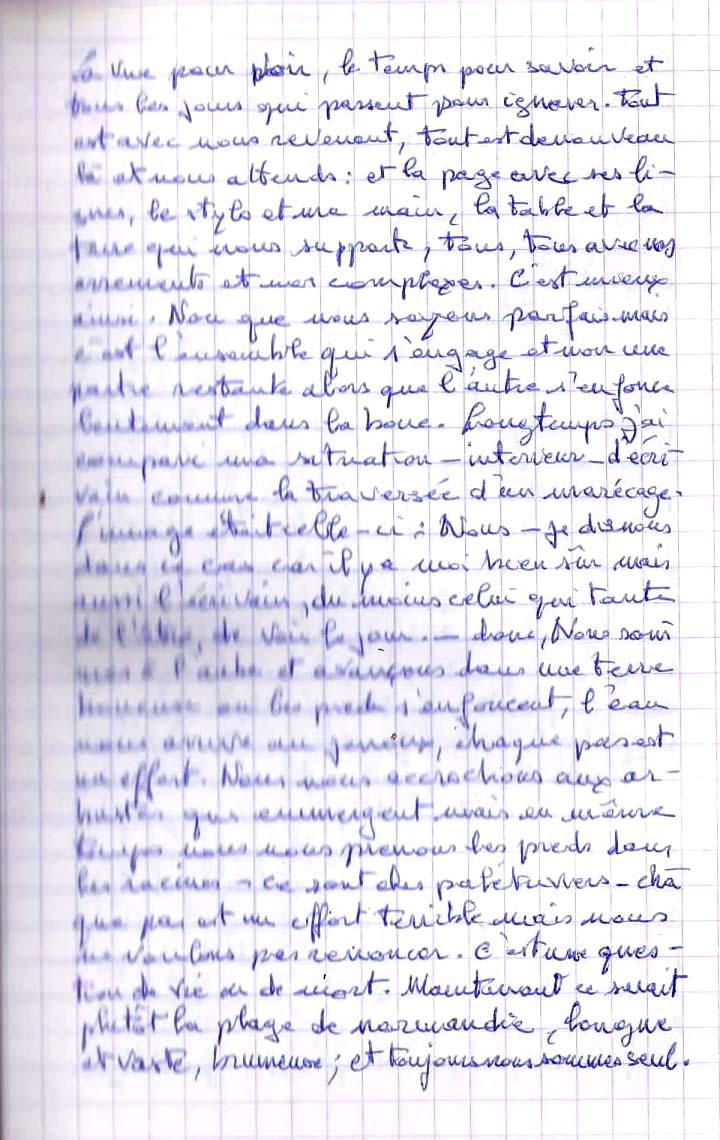 La vue pour plair, le temps pour savoir et
tous les jours qui passent pour ignorer. Tout
est avec nous revenant, tout est de nouveau
là et nous attends : et la page avec ses li-
gnes, le stylo et ma main, la table et la
terre qui nous supporte, tous, tous avec nos
errements et nos complexes. C'est mieux
ainsi. Non que nous soyons parfais mais
c'est l'ensemble qui s'engage et non une
partie restante alors que l'autre s'enfonce
lentement dans la boue. Longtemps j'ai
comparé ma situation - interieur - d'écri-
vain comme la traversée d'un marécage.
L'image était celle-ci : Nous - je dis nous
dans ce cas car il y a moi bien sûr mais
aussi l'écrivain, du moins celui qui tante
de l'être, de voir le jour. - donc, Nous som
mes à l'aube et avançons dans une terre
boueuse ou les pieds s'enfoncent, l'eau
nous arrive au genoux, chaque pas est
un effort. Nous nous accrochons aux ar-
bustes qui emmergent mais en même
temps nous nous prenons les pieds dans
les racines - ce sont des palétuviers - cha
que pas est un effort terrible mais nous
ne voulons pas renoncer. C'est une ques-
tion de vie ou de mort. Maintenant ce serait
plutôt la plage de normandie, longue
et vaste, brumeuse ; et toujours nous sommes seul.